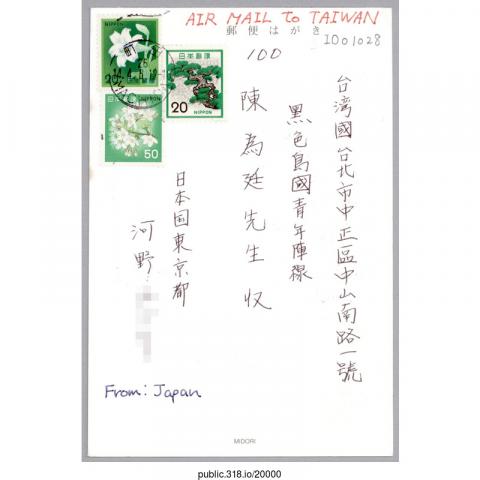 AIR MAIL to TAIWAN
郵便はがき
I001028
100
台湾國台北市中正區中山南路一號
黑色島國青年陣線
陳為廷先生收
日本国東京都
河野
From: Japan
20
NIPPON
日本郵便
20
NIPPON
50
MIDORI
public.318.io/20000